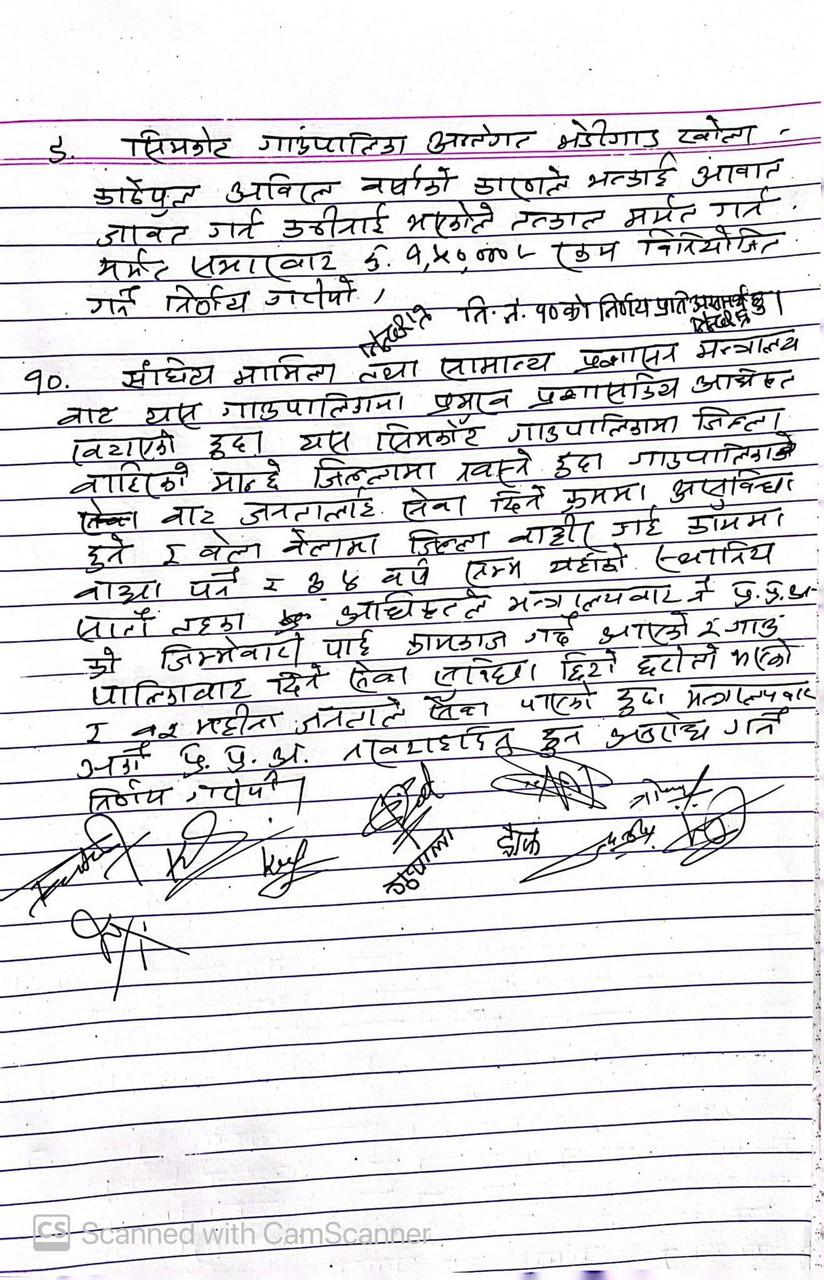 ड. सिमकोट गाउंपालिका अन्तगत भेडीगाड खोला -
काठेपुल अविरल वर्षाको कारणले भत्काई आवात
जावत गर्न कठीनाई भएकोले तत्काल मर्मत गर्न
मर्मत सभारवाट रु. १,५०,०००/- रकम विनियोजित
गर्ने निर्णय गरीयो ।
नि. नं. १० को निर्णय प्रति असहमत छु।
१०. संघिय मामिला तथा सामान्य प्रशासन मन्त्रालय
वाट यस गाउपालिकामा प्रमुख प्रशासकिय अधिकृत
खटाएको हुदा यस सिमकोट गाउपालिकामा जिल्ला
वाहिरको मान्छे जिल्लामा नवस्ने हुदा गाउपालिकाको
वाट जनतालाई सेवा दिने क्रममा असुविधा
हुने र वेला वेलामा जिल्ला वाहीर गई काममा
वाधा पर्ने र ३, ४ वर्ष सम्म यहाँको स्थानिय
सातौ तहका अधिकृतले मन्त्रालयवाट नै प्र.प्र.अ-
को जिम्मेवारी पाई कामकाज गर्दै आएको र गाउ
पालिकावाट दिने सेवा सुविधा छिटो छरीतो भएको
र महीना जनताले सेवा पाएको हुदा मन्त्रालयवाट
अर्को प्र. प्र. अ. हुन अनुरोध गर्ने
निर्णय गरीयो ।
CS Scanned with CamScanner